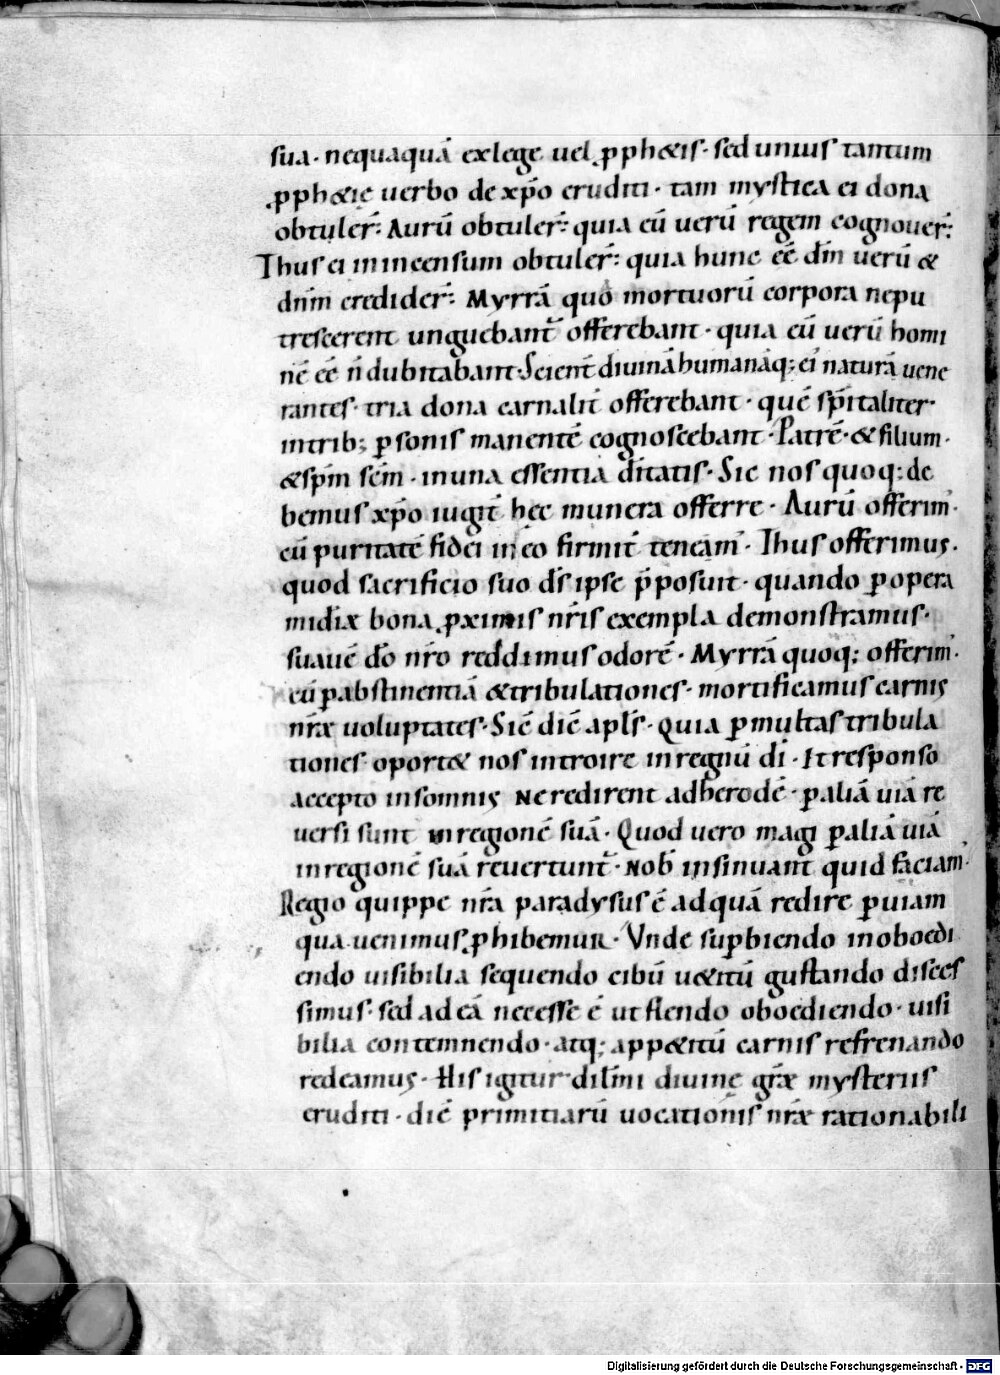 sua · nequaquā exlege uel ꝓph&is · sed unius tantum
ꝓph&ię uerbo de xp̄o eruditi · tam mystica ei dona
obtuler̄: Aurū obtuler̄: quia eū uerū regem cognouer̄:
Thus ei inincensum obtuler̄: quia hunc eē dm̄ uerū &
dn̄m credider̄: Myrrā quo mortuorū corpora nepu
trescerent unguebant᷒ offerebant · quia eū uerū homi
nē eē n̄ dubitabant· Scient̄ diuinā humanāq; ei naturā uene
rantes · tria dona carnalit̄ offerebant · quē sp̄italiter·
intrib; ꝑsonis manentē cognoscebant · Patrē · & filium·
& sp̄m scm̄ · inuna essentia dītatis · Sic nos quoq; de
bemus xp̄o iugit̄ hęc munera offerre · Aurū offerim᷒·
cū puritatē fidei in eo firmit̄ teneam᷒ · Thus offerimus·
quod sacrificio suo ds̄ ipse p̄posuit · quando ꝑ opera
mīdiæ bona ꝓximis nr̄is exempla demonstramus·
suauē dō nr̄o reddimus odorē · Myrrā quoq; offerim᷒·
cū ꝑ abstinentiā & tribulationes · mortificamus carnis
nr̄æ uoluptates · Sic̄ dic̄ apls̄ · Quia ꝑ multas tribula
tiones oport& nos introire inregnū dī · Et responso
accepto insomnis Ne redirent adherodē · ꝑ aliā uiā re
uersi sunt in regionē suā · Quod uero magi ꝑ aliā uiā
in regionē suā reuertunt᷒ · Nob̄ insinuant quid faciam᷒·
Regio quippe nr̄a paradysus ē adquā redire ꝑ uiam
qua uenimus ꝓhibemur · Vnde supƀiendo inoboedi
endo uisibilia sequendo cibū u&itū gustando disces
simus · sed ad eā necesse ē ut flendo oboediendo · uisi
bilia contemnendo · atq; app&itū carnis refrenando
redeamus · His igitur dilm̄i diuinę gr̄æ mysteriis
eruditi · diē primitiarū uocationis nr̄æ rationabili
Digitalisierung gefördert durch die Deutsche Forschungsgemeinschaft - DFG